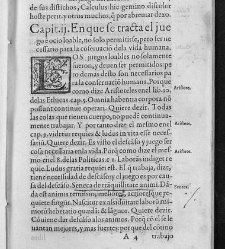 de sus distichos, Calculus hic gemino discolor
hoste perit. y otros muchos, q̃ por abreuiar dexo.
Capit. ij. En que se tracta el jue
go ocio loable, no solo permitirse, pero ser ne
cessario para la conseruaciõ dela vida humana.
LOS juegos loables no solamente
fueron, y deuen ser permitidos pe
ro demas desto son necessarios pa
ra la conseruaciõ humana. Por que
como dize Aristoteles en el lib. 10.
delas Ethicas cap. 5. Omnia habent a corpora nõ
possunt continue operari. Quiere dezir. Todas
las cosas que tienen cuerpo, no puedẽ continua
mente trabajar. Y por tanto dize el mesmo enel
cap. videtur requies & ludus in vita esse
necessaria. Quiere dezir. Es visto el descãso y juego ser
necessarios enla vida. Porq̃ como dize el mes-
mo enel 8. delas Politicas Laboràs indiget re
quie. Ludus est gratia requiei. El q̃ trabaja, dize,
tiene necessidad de descãso: y el juego es por cau
sa del descãso Seneca de trãquilitate animi. Dã
da est animis remissio,
requiese surgũt. Nascitur ex assiduitate laborũ
Quiere dezir.
Cõuiene dar descãso alos animos. Porq̃ cõ el se le
uantan mejores, y mas fuertes: porque del con-
A 4 trabajo
Aristote.
Aristote.
Aristote.
Seneca.